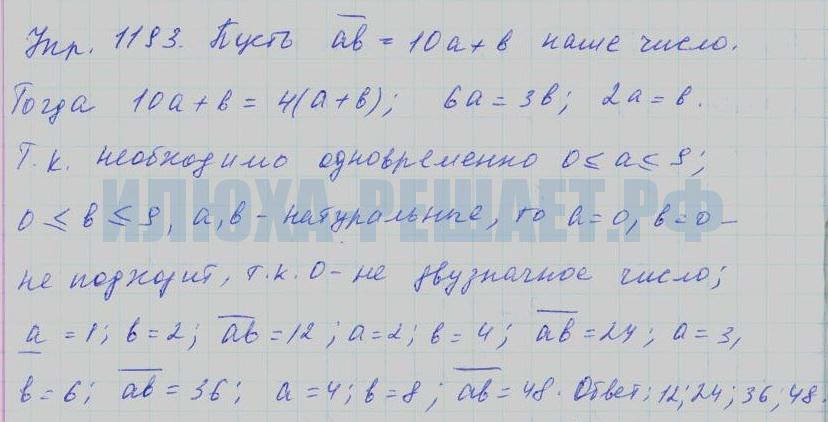 Упр. 1193. Пусть ab = 10a + b наше число.
Тогда 10a + b = 4(a + b); 6a = 3b; 2a = b.
Т.к. необходимо одновременно 0 ≤ a ≤ 9;
ИЛЮХА-РЕШАЕТ.РФ
0 ≤ b ≤ 9, a, b - натуральные, то a = 0, b = 0 -
не подходит, т.к. 0 - не двузначное число;
a = 1; b = 2; ab = 12; a = 2; b = 4; ab = 24; a = 3,
b = 6; ab = 36; a = 4; b = 8; ab = 48. Ответ: 12; 24; 36; 48.